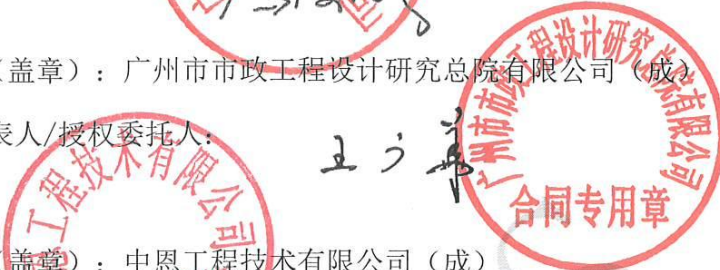 （盖章）：广州市市政工程设计研究总院有限公司（成）
表人/授权委托人：
广州市市政工程设计研究总院有限公司
合同专用章
工程技术有限公司
（盖章）：中恩工程技术有限公司（成）